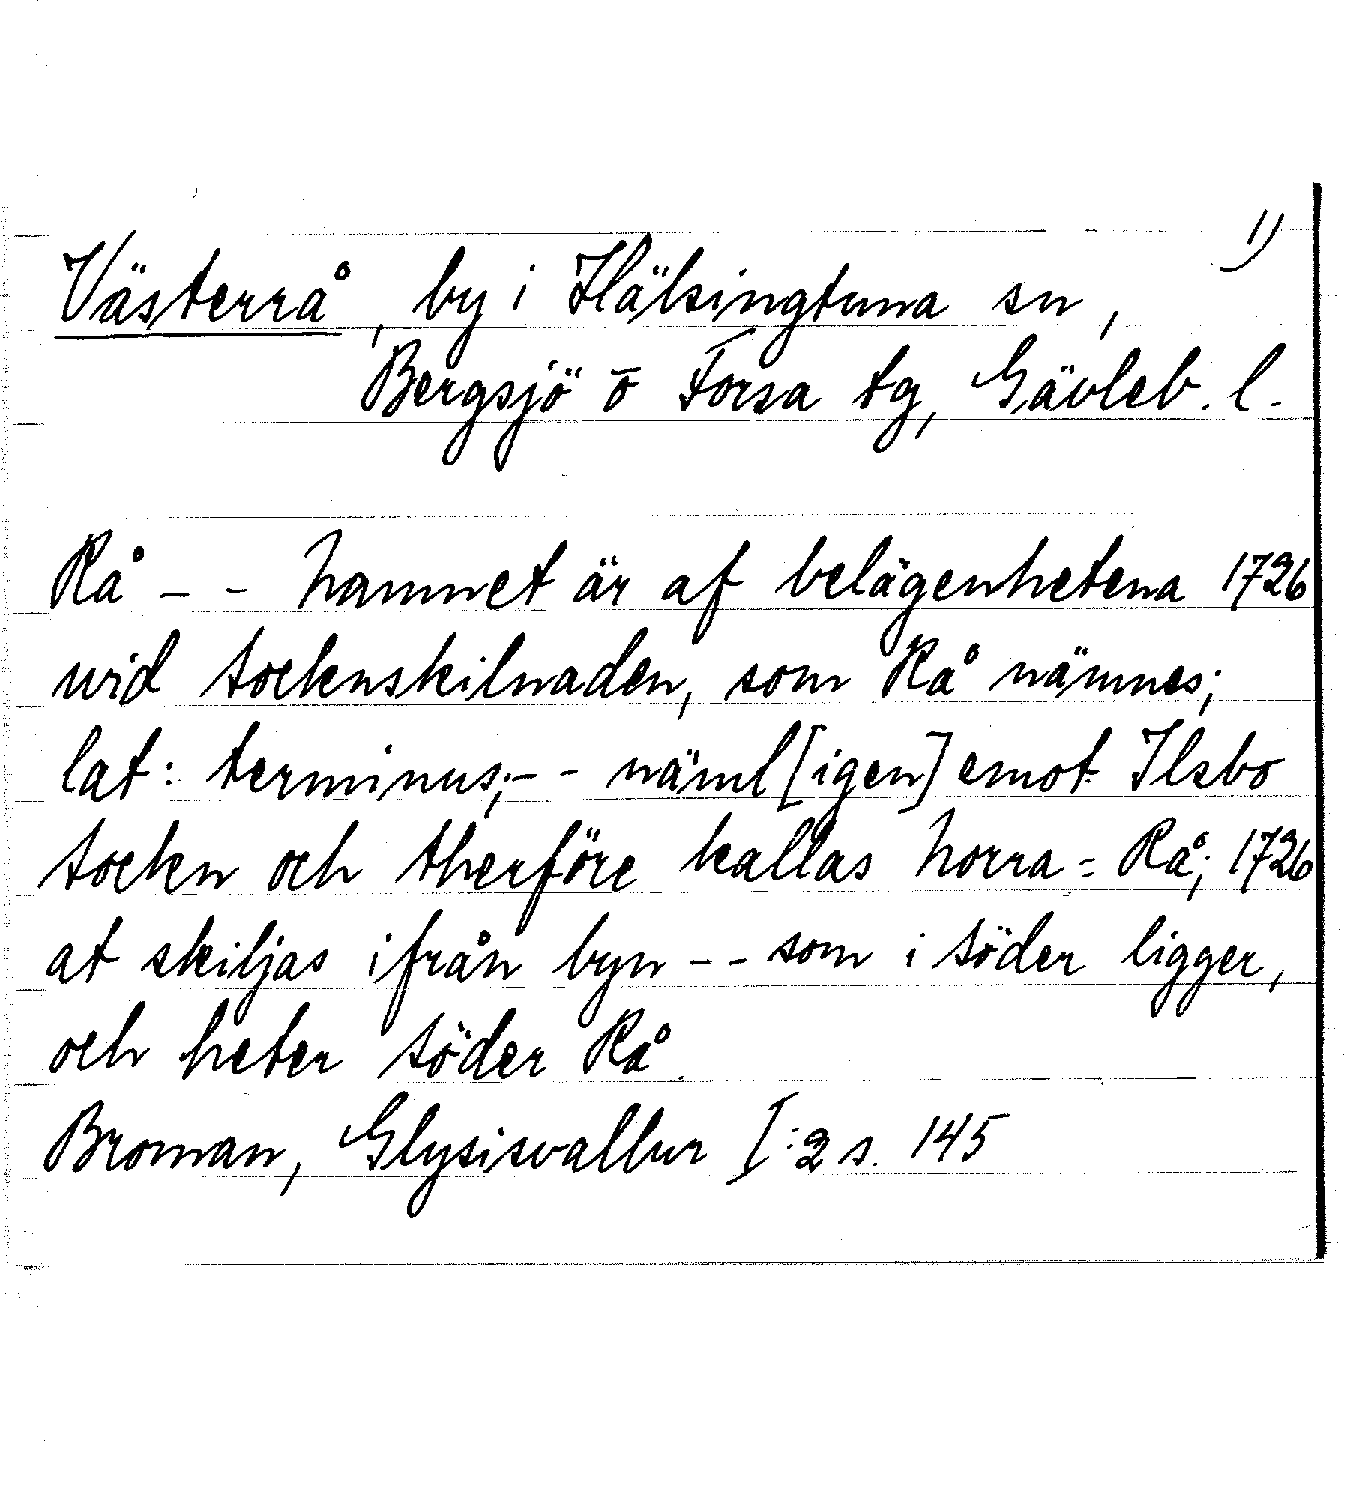 1)
Västerrå, by i Hälsingtuna sn,
Bergsjö o Forsa tg, Gävleb. l.
Rå - - Namnet är af belägenhetena 1726
wid Socknskilnaden, som Rå nämnes;
lat: terminus; - - näml[igen] emot Ilsbo
Sockn och therföre kallas Norra = Rå; 1726
at skiljas ifrån byn - - som i Söder ligger,
och heter Söder Rå.
Broman, Glysisvallur I:2 s. 145